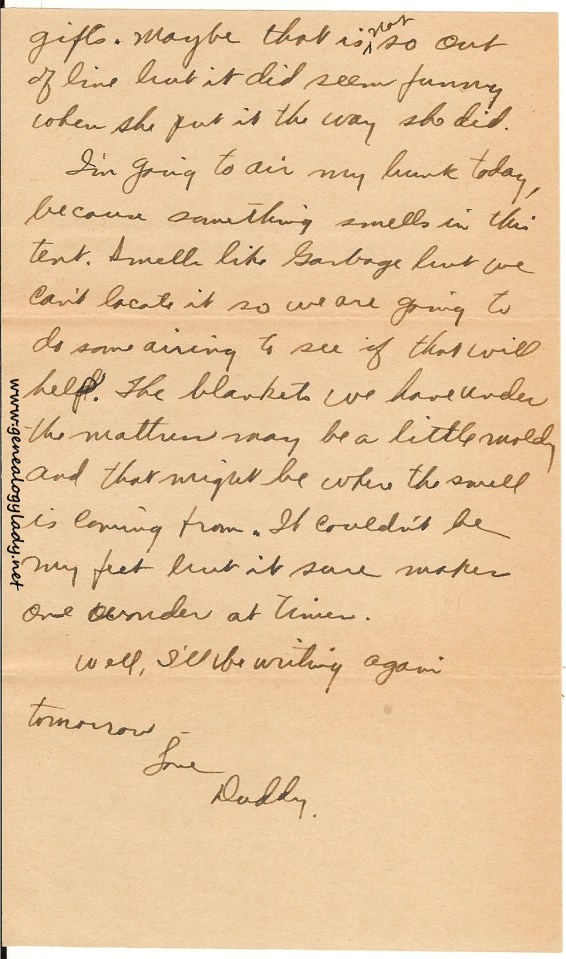 gifts. Maybe that is not so out
of line but it did seem funny
when she put it the way she did.
I'm going to air my bunk today,
because something smells in this
tent. Smells like Garbage but we
can't locate it so we are going to
do some airing to see if that will
help. The blankets we have under
the mattress may be a little moldy
and that might be where the smell
is coming from. It couldn't be
my feet but it sure makes
one wonder at times.
Well, I'll be writing again
tomorrow -
Love
Daddy.
www.genealogylady.net